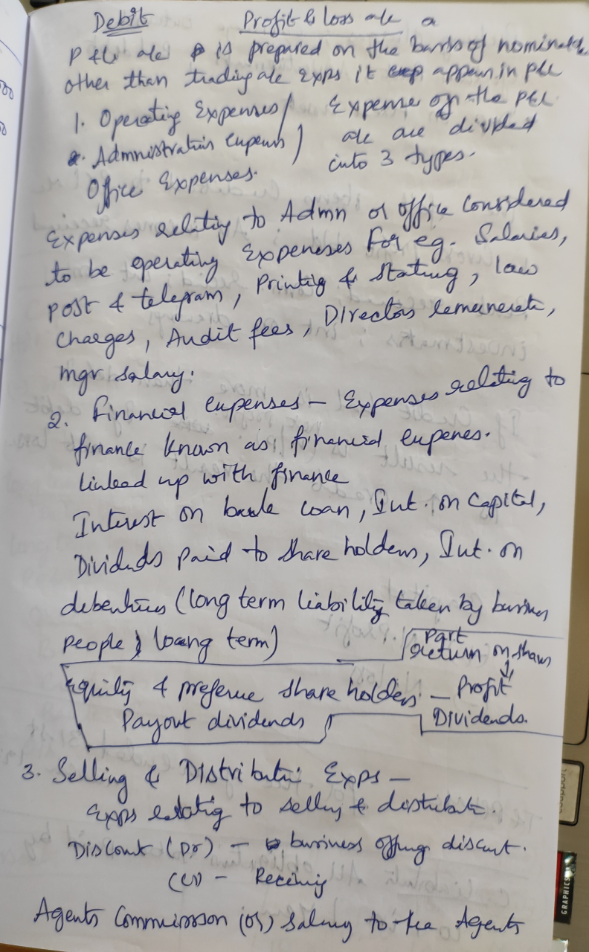 Debit Profit & loss a/c
P & L a/c is prepared on the basis of nominal a/c
other than trading a/c Exps it appear in P&L
1. Operating Expenses / Expense of the P&L
Administration Expenses } a/c are divided
Office Expenses. into 3 types.
Expenses relating to Admn or office considered
to be operating Expeneses For eg. Salaries,
post & telegram, Printig & Stating, law
charges, Audit fees, Directors remunerate,
mgr salary.
2. Financial expenses – Expenses relating to
finance known as financial expenes.
Linked up with finance
Interest on bank loan, Int. on Capital,
Dividends paid to share holders, Int. on
debentures (long term liability taken by business
people) loang term)
Part
return on shares
Equity & preferne share holders – Profit
Payout dividends Dividends.
3. Selling & Distributi Exps –
Exps relating to selling & distribute
Discount (Dr) – business offering discount.
(Cr) – Receiving
Agents Commission (or) Salary to the Agents
GRAPHICS